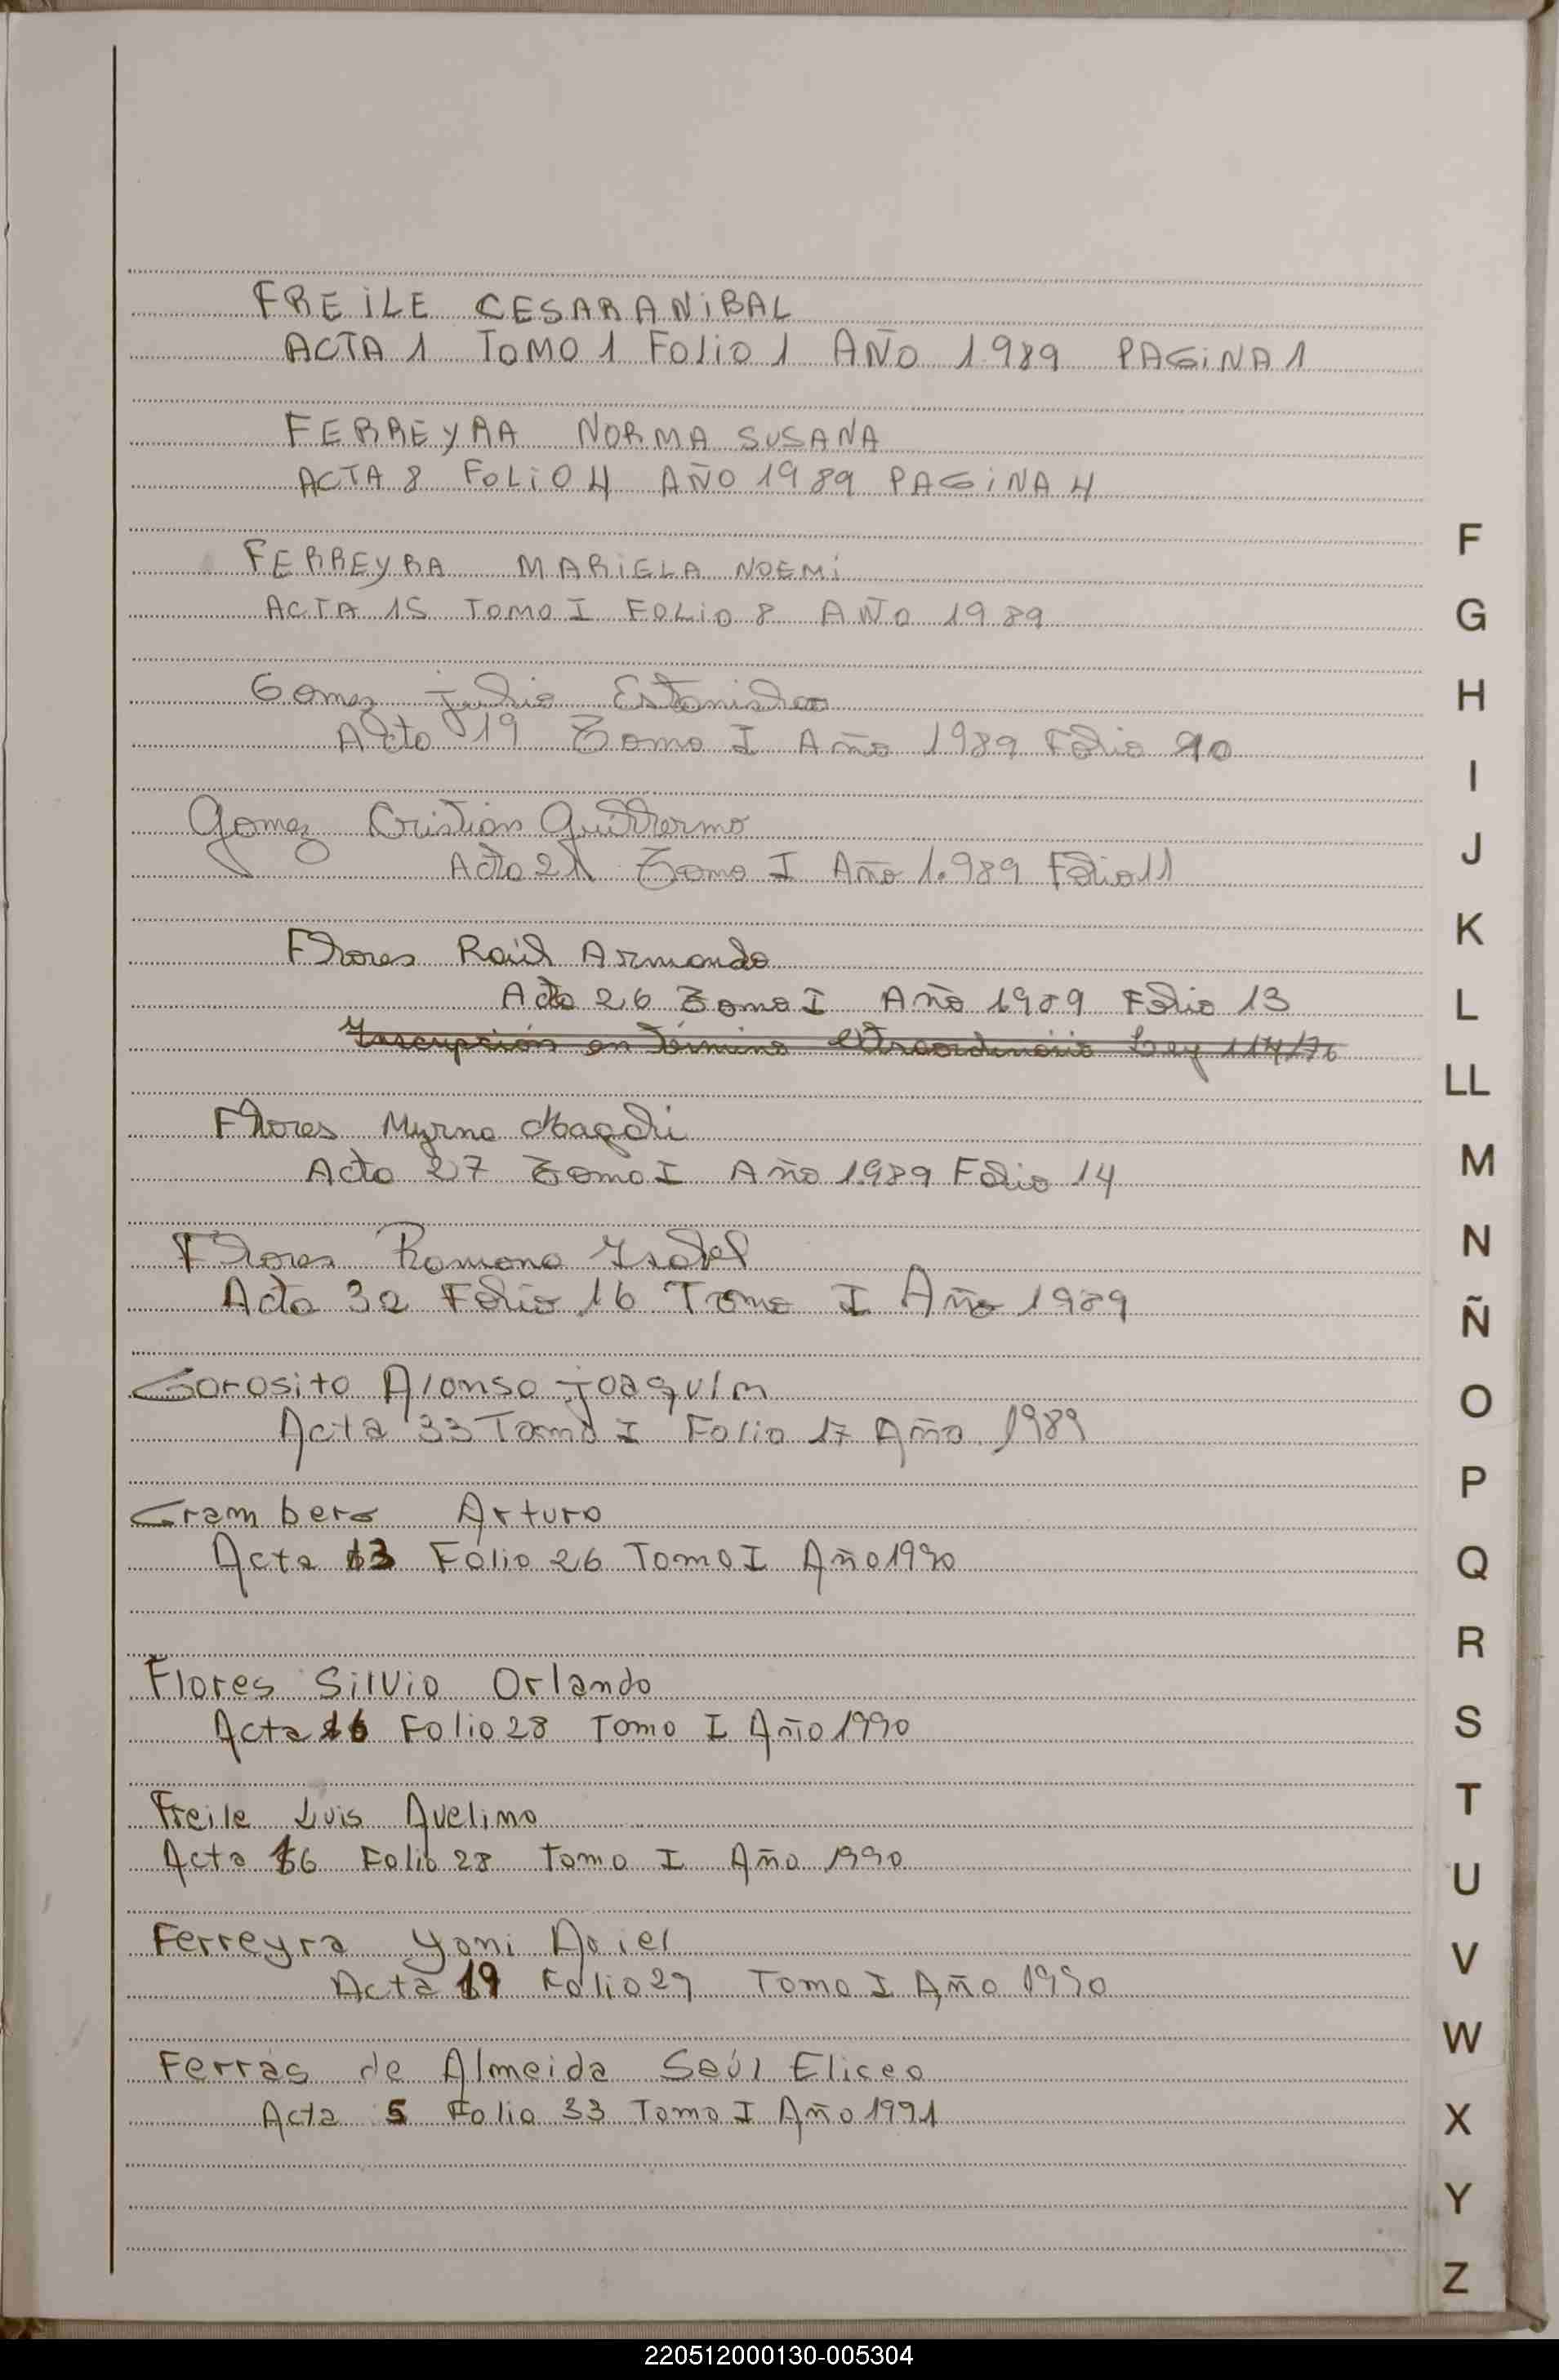 FREILE CESAR ANIBAL
ACTA 1 TOMO 1 FOLIO 1 AÑO 1.989 PAGINA 1
FERREYRA NORMA SUSANA
ACTA 8 FOLIO 4 AÑO 1989 PAGINA 4
FERREYRA MARIELA NOEMI
ACTA 15 TOMO I FOLIO 8 AÑO 1989
Gomez Julio Estanislao
Acta 19 Tomo I Año 1989 Folio 10
Gomez Cristian Guillermo
Acta 21 Tomo I Año 1.989 Folio 11
Flores Raúl Armando
Acta 26 Tomo I Año 1989 Folio 13
Inscripción en Término extraordinario Ley 114/76
Flores Myrna Magali
Acta 27 Tomo I Año 1989 Folio 14
Flores Ramona Isabel
Acta 32 Folio 16 Tomo I Año 1989
Gorosito Alonso Joaquim
Acta 33 Tomo I Folio 17 Año 1989
Gramberg Arturo
Acta 13 Folio 26 Tomo I Año 1990
Flores Silvio Orlando
Acta 16 Folio 28 Tomo I Año 1990
Freile Luis Avelino
Acta 16 Folio 28 Tomo I Año 1990
Ferreyra Yoni Ariel
Acta 19 Folio 29 Tomo I Año 1990
Ferrás de Almeida Saúl Eliceo
Acta 5 Folio 33 Tomo I Año 1991
F
G
H
I
J
K
L
LL
M
N
Ñ
O
P
Q
R
S
T
U
V
W
X
Y
Z
220512000130-005304